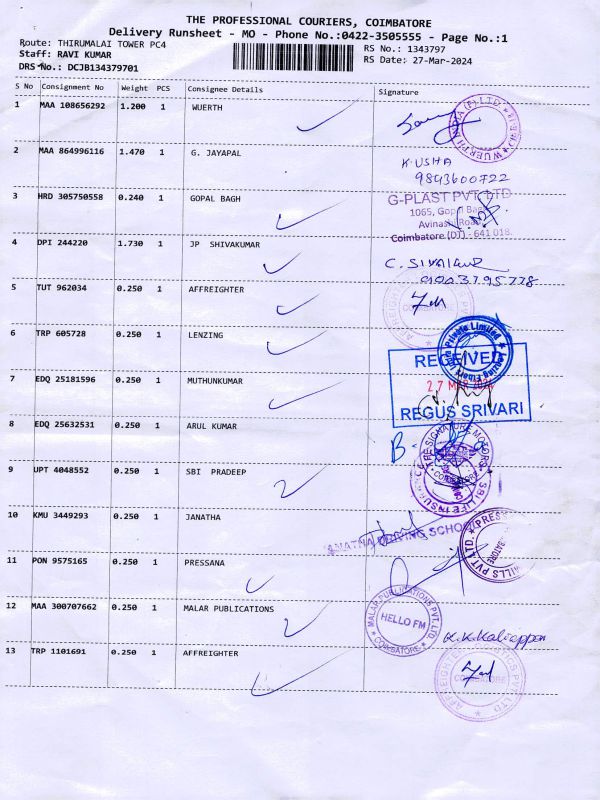 THE PROFESSIONAL COURIERS, COIMBATORE
Delivery Runsheet - MO - Phone No.:0422-3505555 - Page No.:1
Route: THIRUMALAI TOWER PC4
RS No.: 1343797
Staff: RAVI KUMAR
RS Date: 27-Mar-2024
DRS No.: DCJB134379701
S No Consignment No Weight PCS Consignee Details Signature
1 MAA 108656292 1.200 1 WUERTH
2 MAA 864996116 1.470 1 G. JAYAPAL K.USHA
9843600722
3 HRD 305750558 0.240 1 GOPAL BAGH G-PLAST PVT. LTD
1065, Gopal Bagh
Avinashi Road
Coimbatore (DT) - 641 018.
4 DPI 244220 1.730 1 JP SHIVAKUMAR
5 TUT 962034 0.250 1 AFFREIGHTER
6 TRP 605728 0.250 1 LENZING
RECEIVED
7 EDQ 25181596 0.250 1 MUTHUNKUMAR 27 MAR 2024
REGUS SRIVARI
8 EDQ 25632531 0.250 1 ARUL KUMAR
9 UPT 4048552 0.250 1 SBI PRADEEP
10 KMU 3449293 0.250 1 JANATHA
11 PON 9575165 0.250 1 PRESSANA
12 MAA 300707662 0.250 1 MALAR PUBLICATIONS MALAR PUBLICATIONS PVT. LTD
HELLO FM
COIMBATORE
13 TRP 1101691 0.250 1 AFFREIGHTER